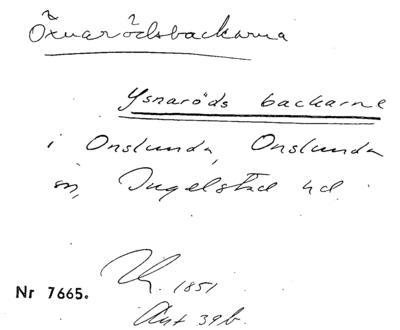 Öxnarödsbackarna
Ysnaröds backarne
i Onslunda, Onslunda
sn, Ingelstad hd.
1851
Nr 7665.
Ant 39b.